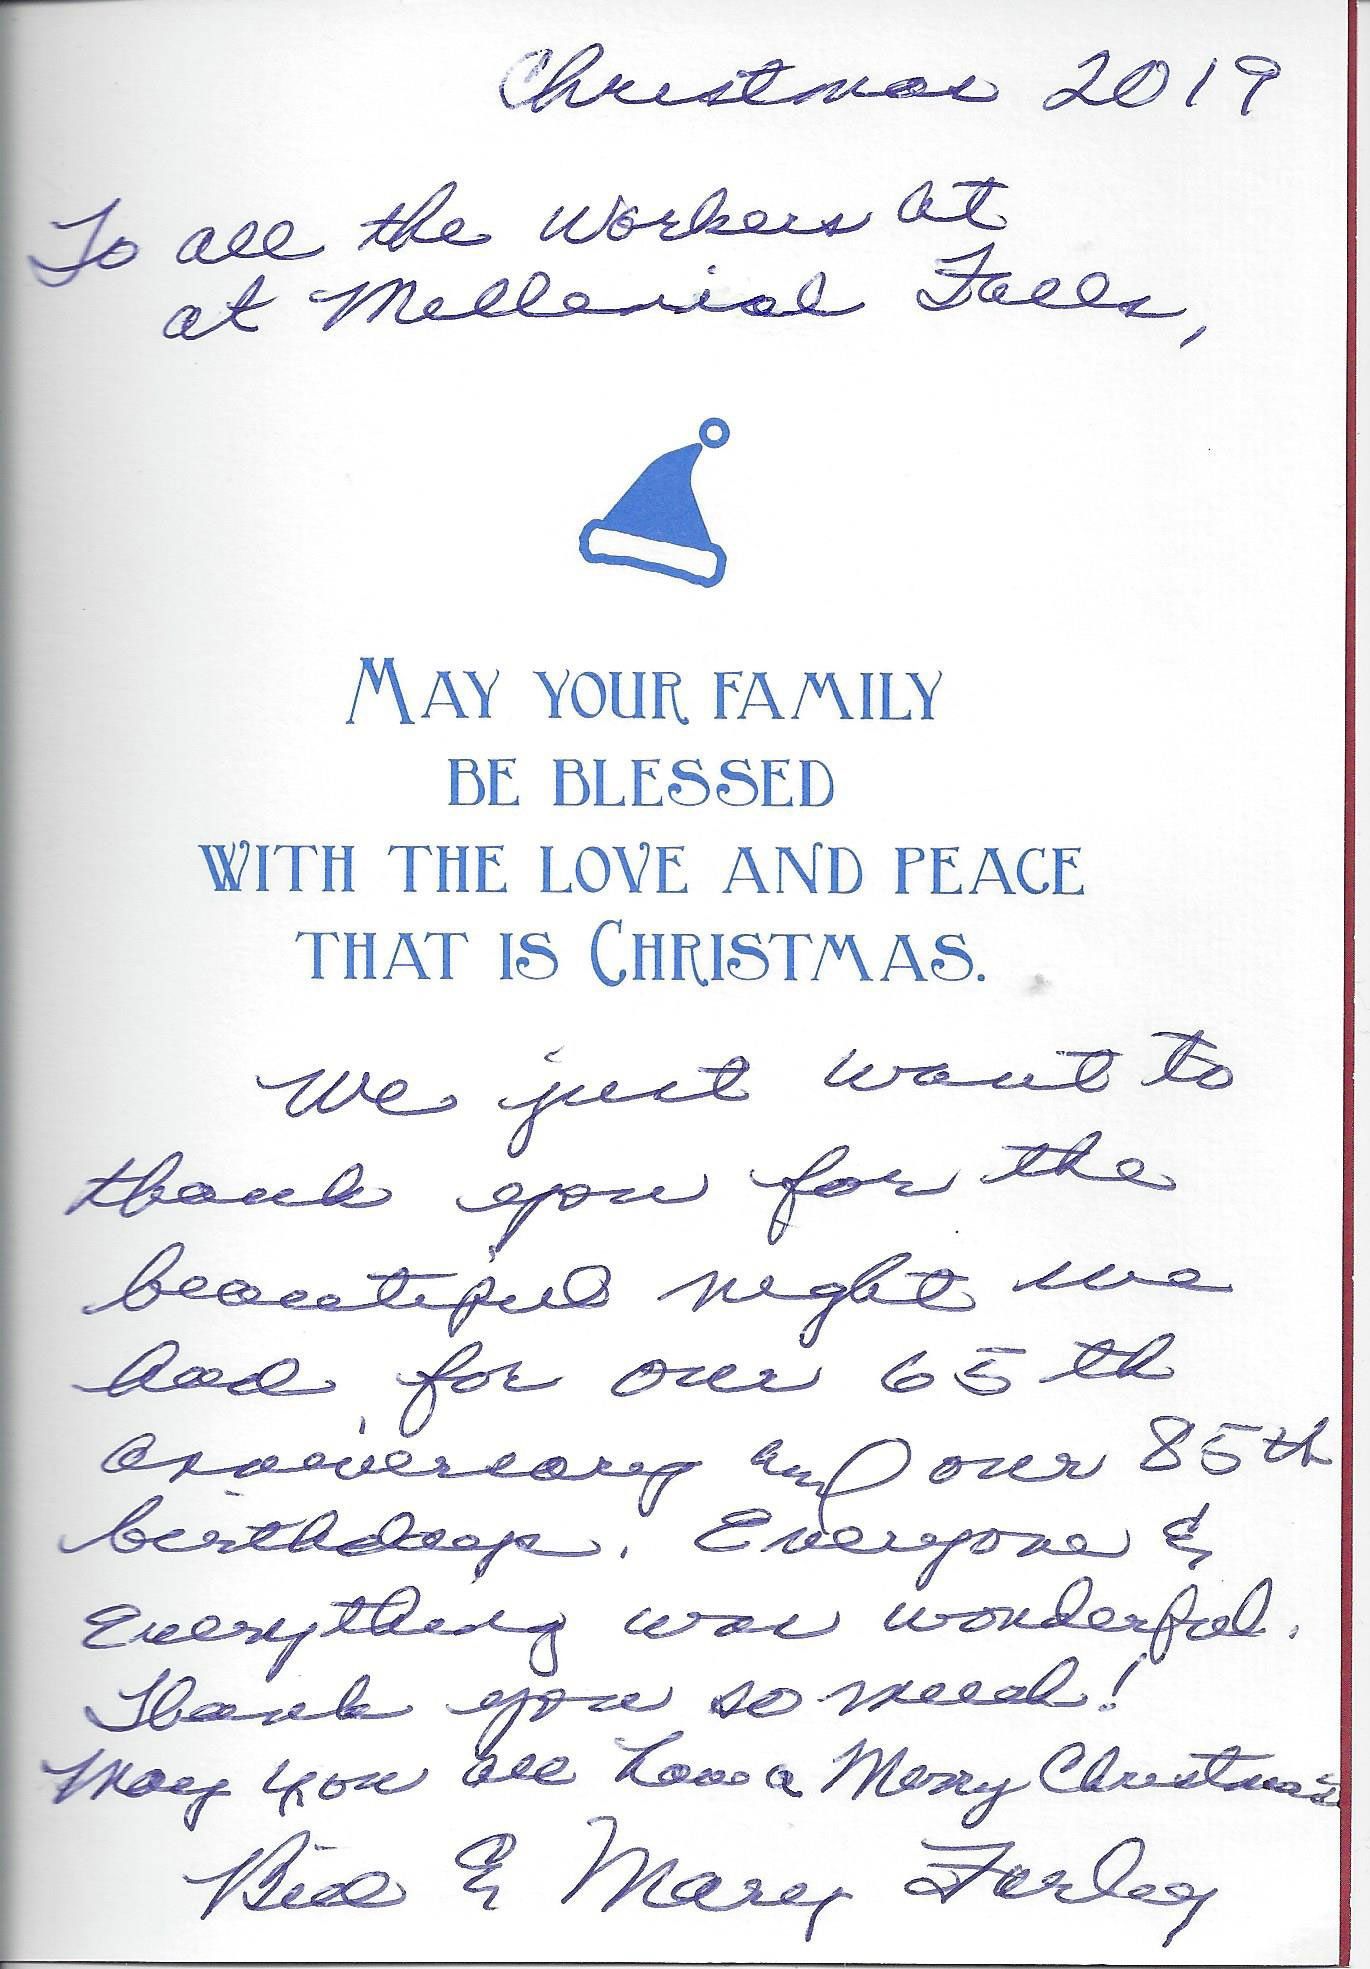 Christmas 2019
To all the Workers at
at Mellenial Falls,
MAY YOUR FAMILY
BE BLESSED
WITH THE LOVE AND PEACE
THAT IS CHRISTMAS.
We just want to
thank you for the
beautiful night we
had for our 65th
anniversary and our 85th
birthday. Everyone &
Everything was wonderful.
Thank you so much!
May you all have a Merry Christmas
Bill & Mary Farley